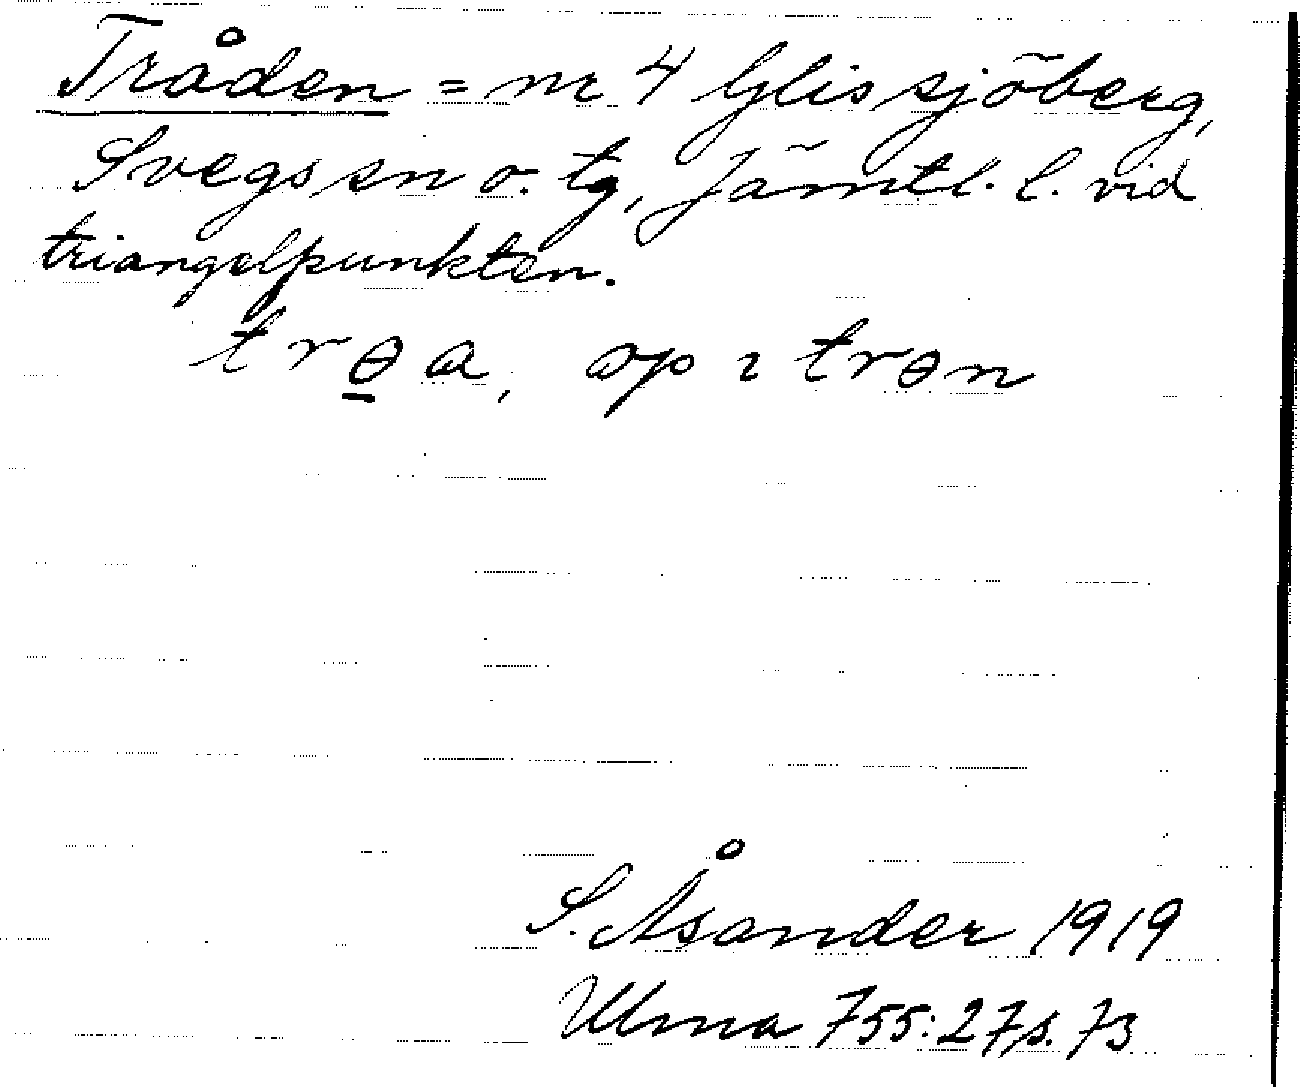 Tråden = nr 4 Glissjöberg,
Svegs sn o. tg, Jämtl. l. vid
triangelpunkten.
trɵa, op ɿ trɵn
S. Åsander 1919
Ulma 755:27 s. 73